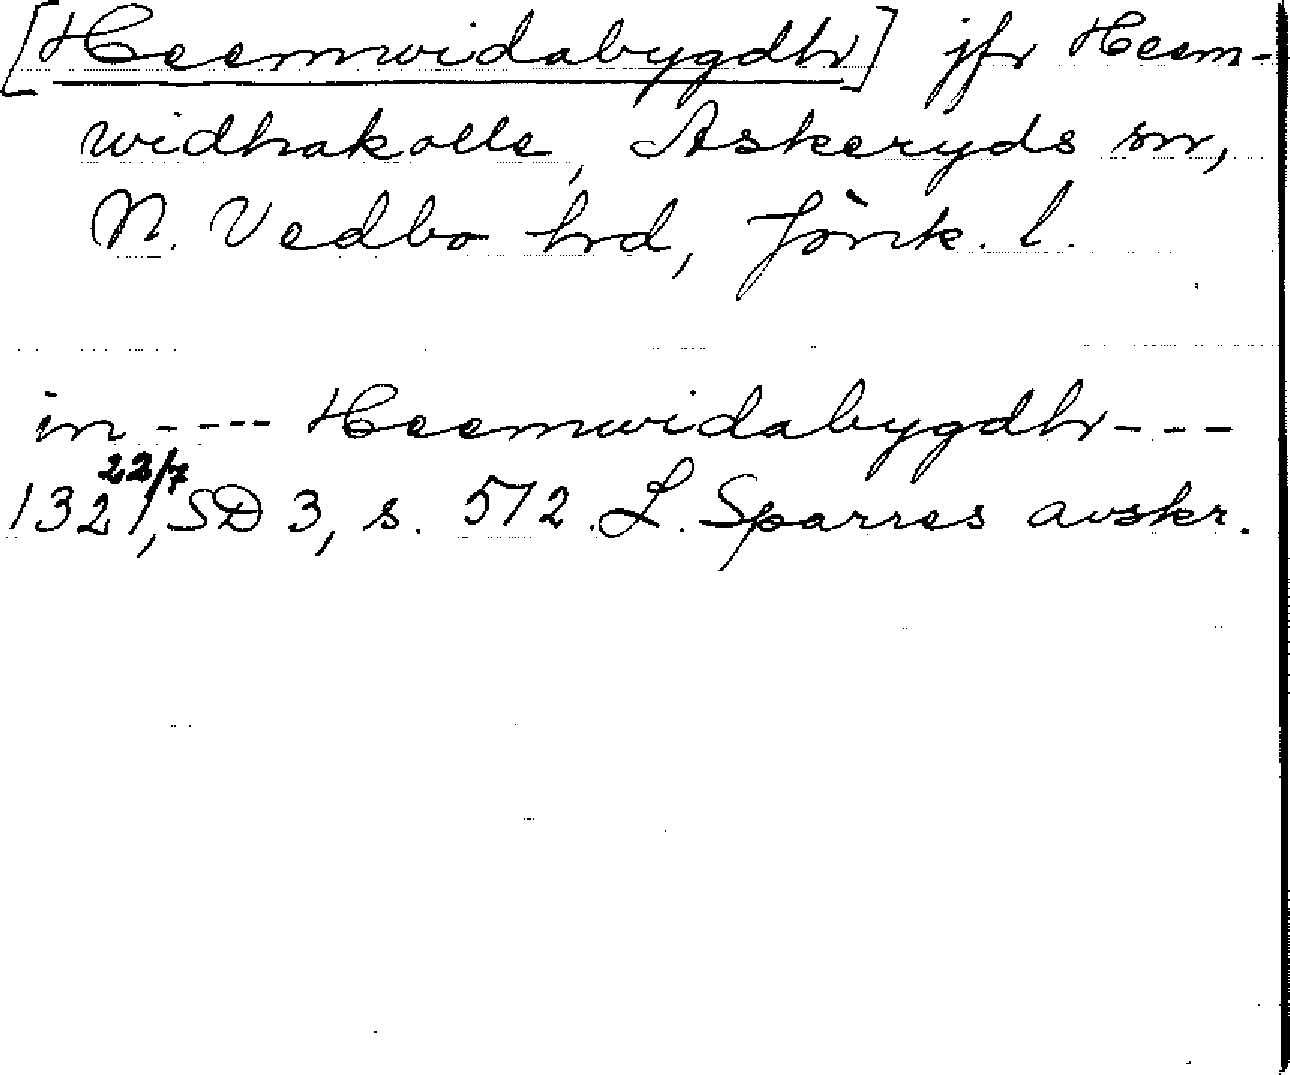 [Heemwidabygdh] jfr Heem-
widhakolle, Askeryds sn,
N. Vedbo hrd, Jönk. l.
in ---- Heemwidabygdh ---
1321 22/7, SD 3, s. 512. L. Sparres avskr.